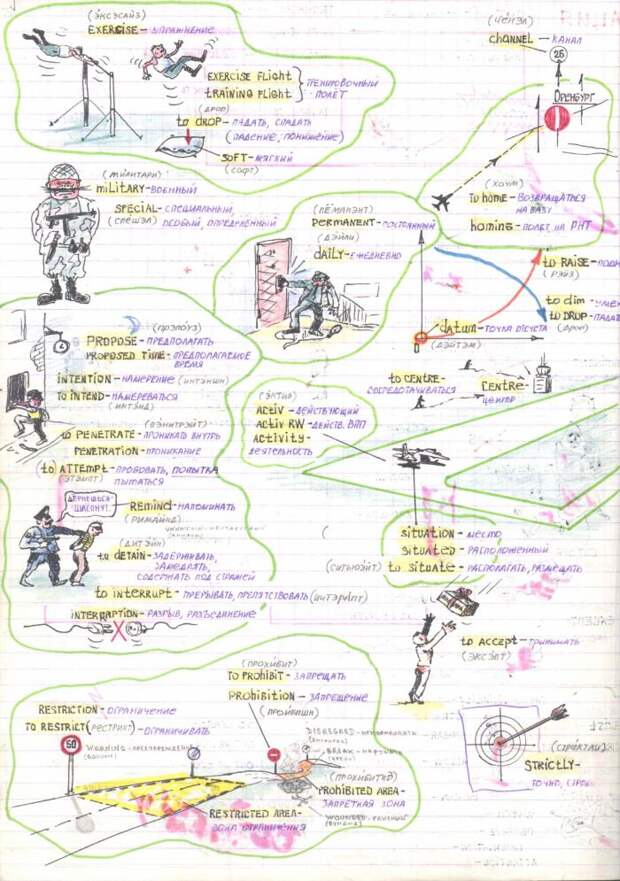 (ЭКСЭСАЙЗ)
EXERCISE – УПРАЖНЕНИЕ
EXERCISE FLIGHT
TRAINING FLIGHT
ТРЕНИРОВОЧНЫЙ ПОЛЁТ
(ДРОП)
to DROP – ПАДАТЬ, СПАДАТЬ
(ПАДЕНИЕ, ПОНИЖЕНИЕ)
SOFT – МЯГКИЙ
(СОФТ)
(ЧЕНЭЛ)
CHANNEL – КАНАЛ
26
ОРЕНБУРГ
(ХОУМ)
TO HOME – ВОЗВРАЩАТЬСЯ
НА БАЗУ
HOMING – ПОЛЕТ НА РНТ
(МИЛИТАРИ)
MILITARY – ВОЕННЫЙ
SPECIAL – СПЕЦИАЛЬНЫЙ,
(СПЕШЭЛ) ОСОБЫЙ, ОПРЕДЕЛЁННЫЙ
(ПЁМАНЭНТ)
PERMANENT – ПОСТОЯННЫЙ
(ДЭЙЛИ)
DAILY – ЕЖЕДНЕВНО
to RAISE –
(РЭЙЗ)
to dim –
to DROP –
(ДРОП)
datum – ТОЧКА ОТСЧЕТА
(ДЭЙТЭМ)
(ПРЭПОУЗ)
PROPOSE – ПРЕДПОЛАГАТЬ
PROPOSED TIME – ПРЕДПОЛАГАЕМОЕ
ВРЕМЯ
INTENTION – НАМЕРЕНИЕ (ИНТЭНШН)
TO INTEND – НАМЕРЕВАТЬСЯ
(ИНТЭНД)
(ПЭНИТРЭЙТ)
to PENETRATE – ПРОНИКАТЬ ВНУТРЬ
PENETRATION – ПРОНИКАНИЕ
to ATTEMPT – ПРОБОВАТЬ, ПОПЫТКА
(ЭТЭМПТ) ПЫТАТЬСЯ
to CENTRE –
СОСРЕДОТАЧИВАТЬСЯ
CENTRE –
ЦЕНТР
(ЭКТИВ)
ACTIV – ДЕЙСТВУЮЩИЙ
ACTIV RW – ДЕЙСТВ. ВПП
ACTIVITY –
ДЕЯТЕЛЬНОСТЬ
ДЕРНЕШЬСЯ –
ШЛЕПНУ!
REMIND – НАПОМИНАТЬ
(РИМАЙНД)
(ДИТЭЙН)
to DETAIN – ЗАДЕРЖИВАТЬ,
ЗАМЕДЛЯТЬ,
СОДЕРЖАТЬ ПОД СТРАЖЕЙ
to INTERRUPT – ПРЕРЫВАТЬ, ПРЕПЯТСТВОВАТЬ (ИНТЭРАПТ)
INTERRAPTION – РАЗРЫВ, РАЗЪЕДИНЕНИЕ
SITUATION – МЕСТО
SITUATED – РАСПОЛОЖЕННЫЙ
(СИТЬЮЭЙТ) to SITUATE – РАСПОЛАГАТЬ, РАЗМЕЩАТЬ
to ACCEPT – ПРИНИМАТЬ
(ЭКСЭПТ)
(ПРОХИБИТ)
TO PROHIBIT – ЗАПРЕЩАТЬ
PROHIBITION – ЗАПРЕЩЕНИЕ
(ПРОИБИШН)
RESTRICTION – ОГРАНИЧЕНИЕ
TO RESTRICT (РЕСТРИКТ) – ОГРАНИЧИВАТЬ
60
WARNING – ПРЕДУПРЕЖДЕНИЕ
DISREGARD –
BREAK –
(ПРОХИБИТИД)
PROHIBITED AREA –
ЗАПРЕТНАЯ ЗОНА
WOUNDED – РАНЕНЫЙ
RESTRICTED AREA –
ЗОНА ОГРАНИЧЕНИЯ
(СТРИКТЛИ)
STRICTLY –